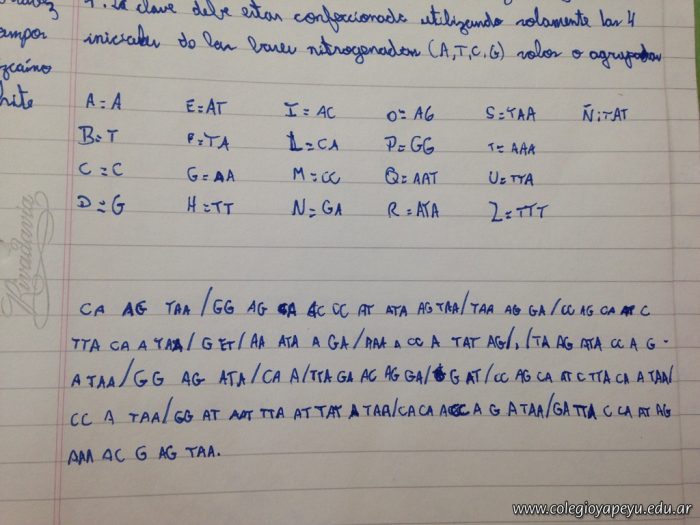 1. la clave debe estar confeccionada utilizando solamente las 4
ampos iniciales de las bases nitrogenadas (A,T,C,G) solos o agrupadas
zcaíno
hite
A=A E=AT I=AC O=AG S=TAA Ñ:TAT
B=T F=TA L=CA P=GG T=AAA
C=C G=AA M=CC Q=AAT U=TTA
D=G H=TT N=GA R=ATA Z=TTT
Rivadavia
CA AG TAA/GG AG CA AC CC AT ATA AG TAA/TAA AG GA/CC AG CA AT C
TTA CA A TAA/G ET/AA ATA A GA/AAA A CC A TAT AG/,/TA AG ATA CC A G-
A TAA/GG AG ATA/CA A/TTA GA AC AG GA/G AT/CC AG CA AT C TTA CA A TAA/
CC A TAA/GG AT AAT TTA AT TAT A TAA/CA CA A G A TAA/GA TTA C CA AT AG
AAA AC G AG TAA.
www.colegioyapeyu.edu.ar